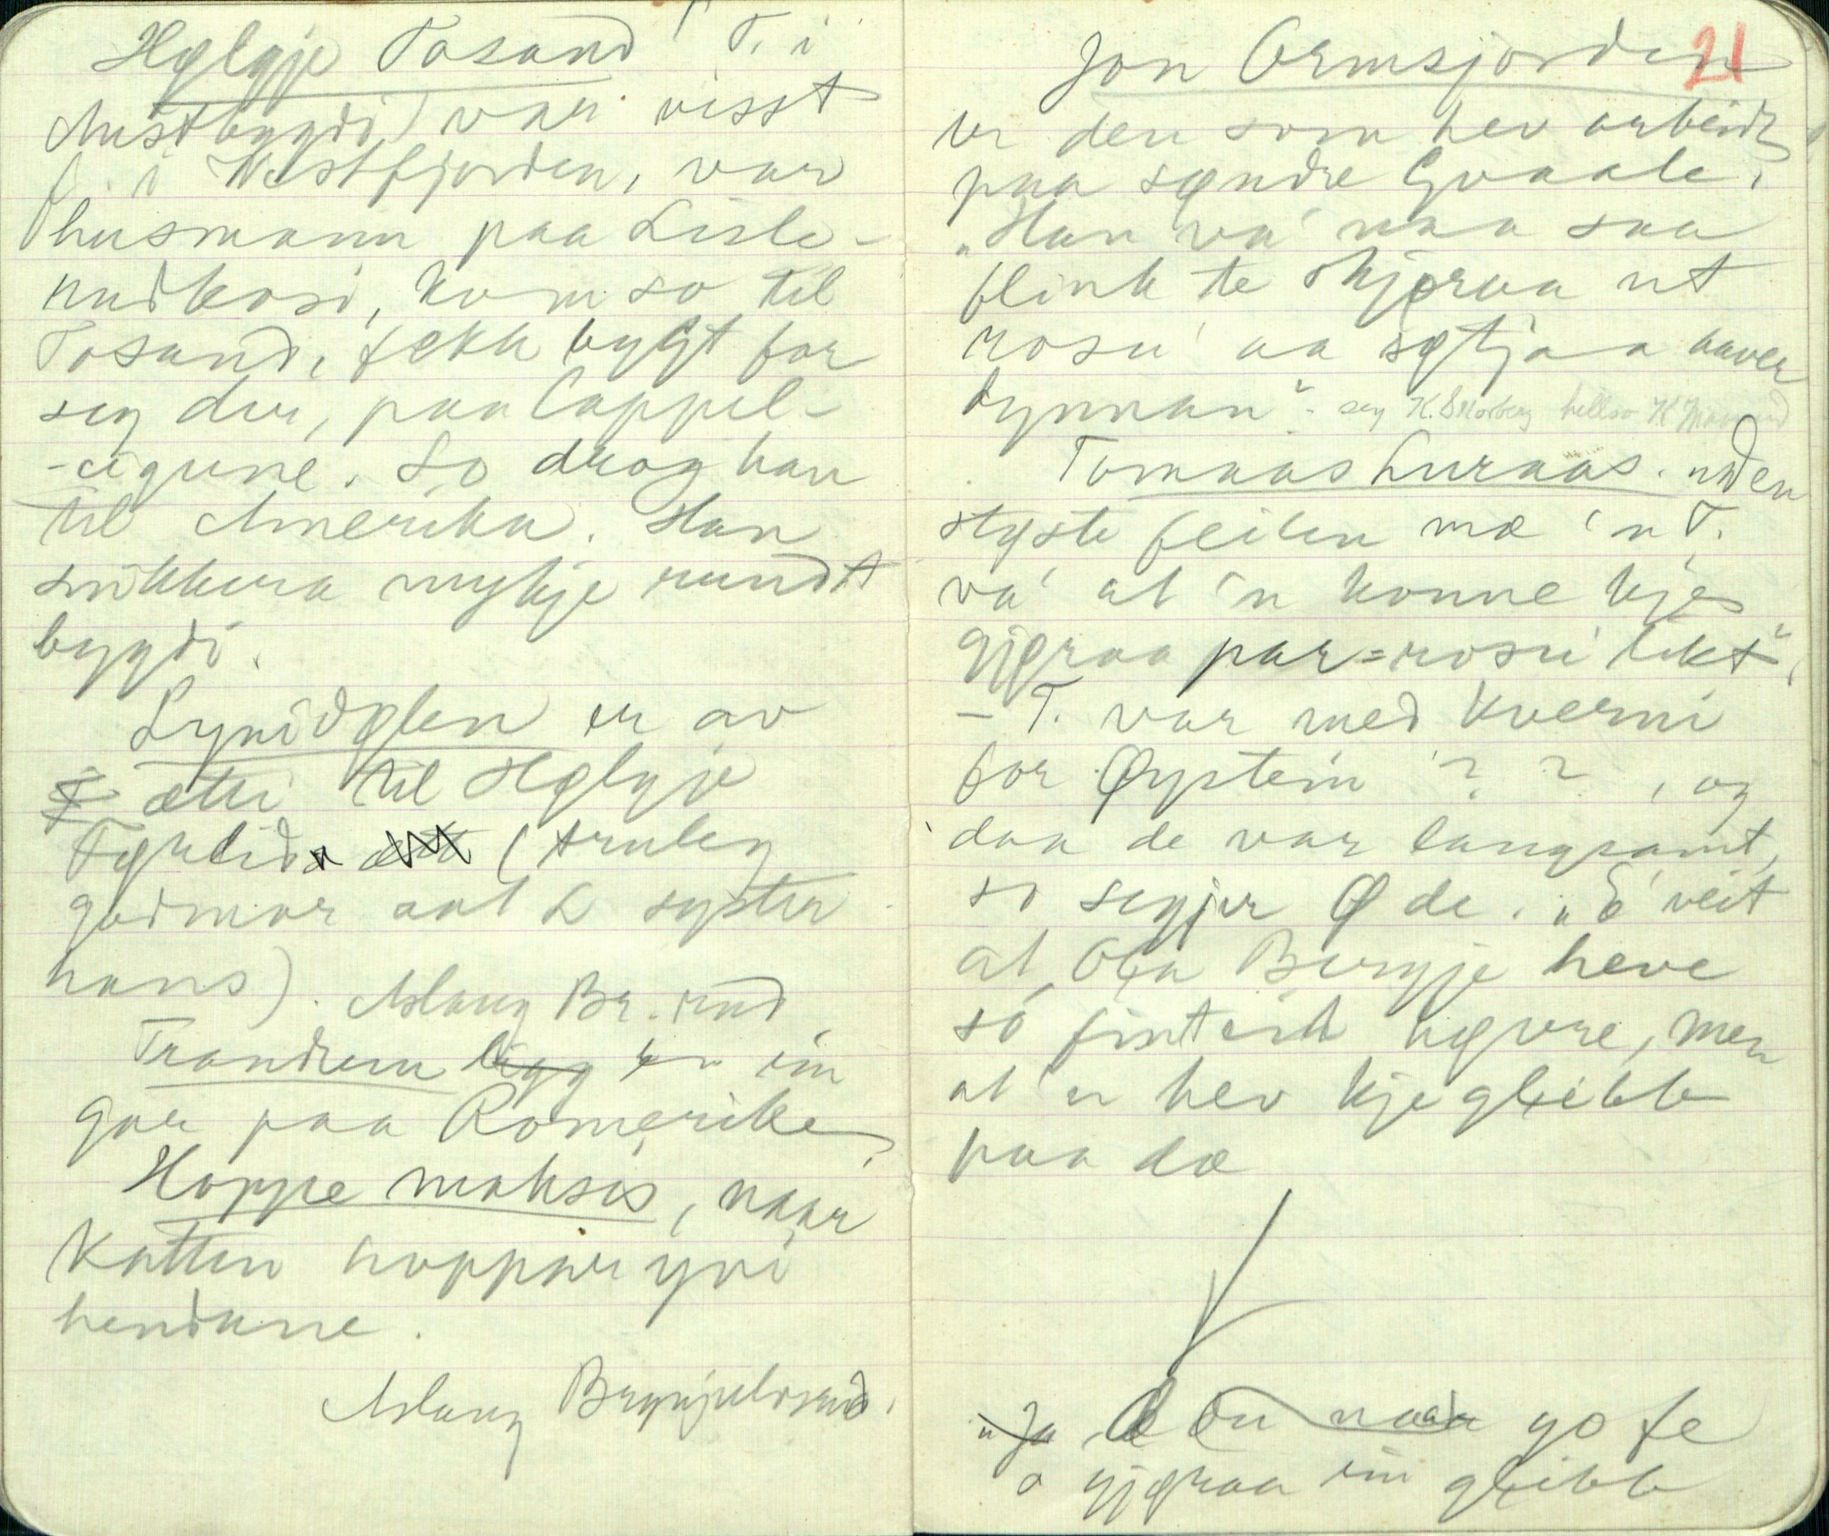 Hølgje Tosand (T. i
Austbygdi) var visst
f. i Vestfjorden, var
husmann paa Lisle-
nudbosi, kom so til
Tosand, fekk bygt for
seg der, paa Cappel-
-eigune. So drog han
til Amerika. Han
snikkera mykje rundt
bygdi.
Synidølen er av
ætti til Hølgje
(truleg
godmor aat L syster
hans). Aslaug Br.rud
Trandum ligg er ein
gar paa Romerike.
Hoppe maksis, naar
Katten hoppar yvi
hendane.
Aslaug Brynjulvsrud.
21
Jon Ormsjorden
er den som hev arbeidt
paa søndre Gvaale.
"Han va' naa saa
flink te skjeraa ut
rosu' aa søtjaa aaver
dynnan". sey K. hellso K
Tomaas Luraas. "Den
styste feilen mæ 'n T.
va' at 'n konne kje
gjøraa par=rosu' likt",
- T. var med kverni
for Øystein ? ? , og
daa de var langsamt,
so segjer Ø de. "E veit
at Ola Bergje heve
so fint eit høvre, men
at 'n hev kje gleibb
paa dæ
"Ja, du naa go te
o gjøraa ein gleibb